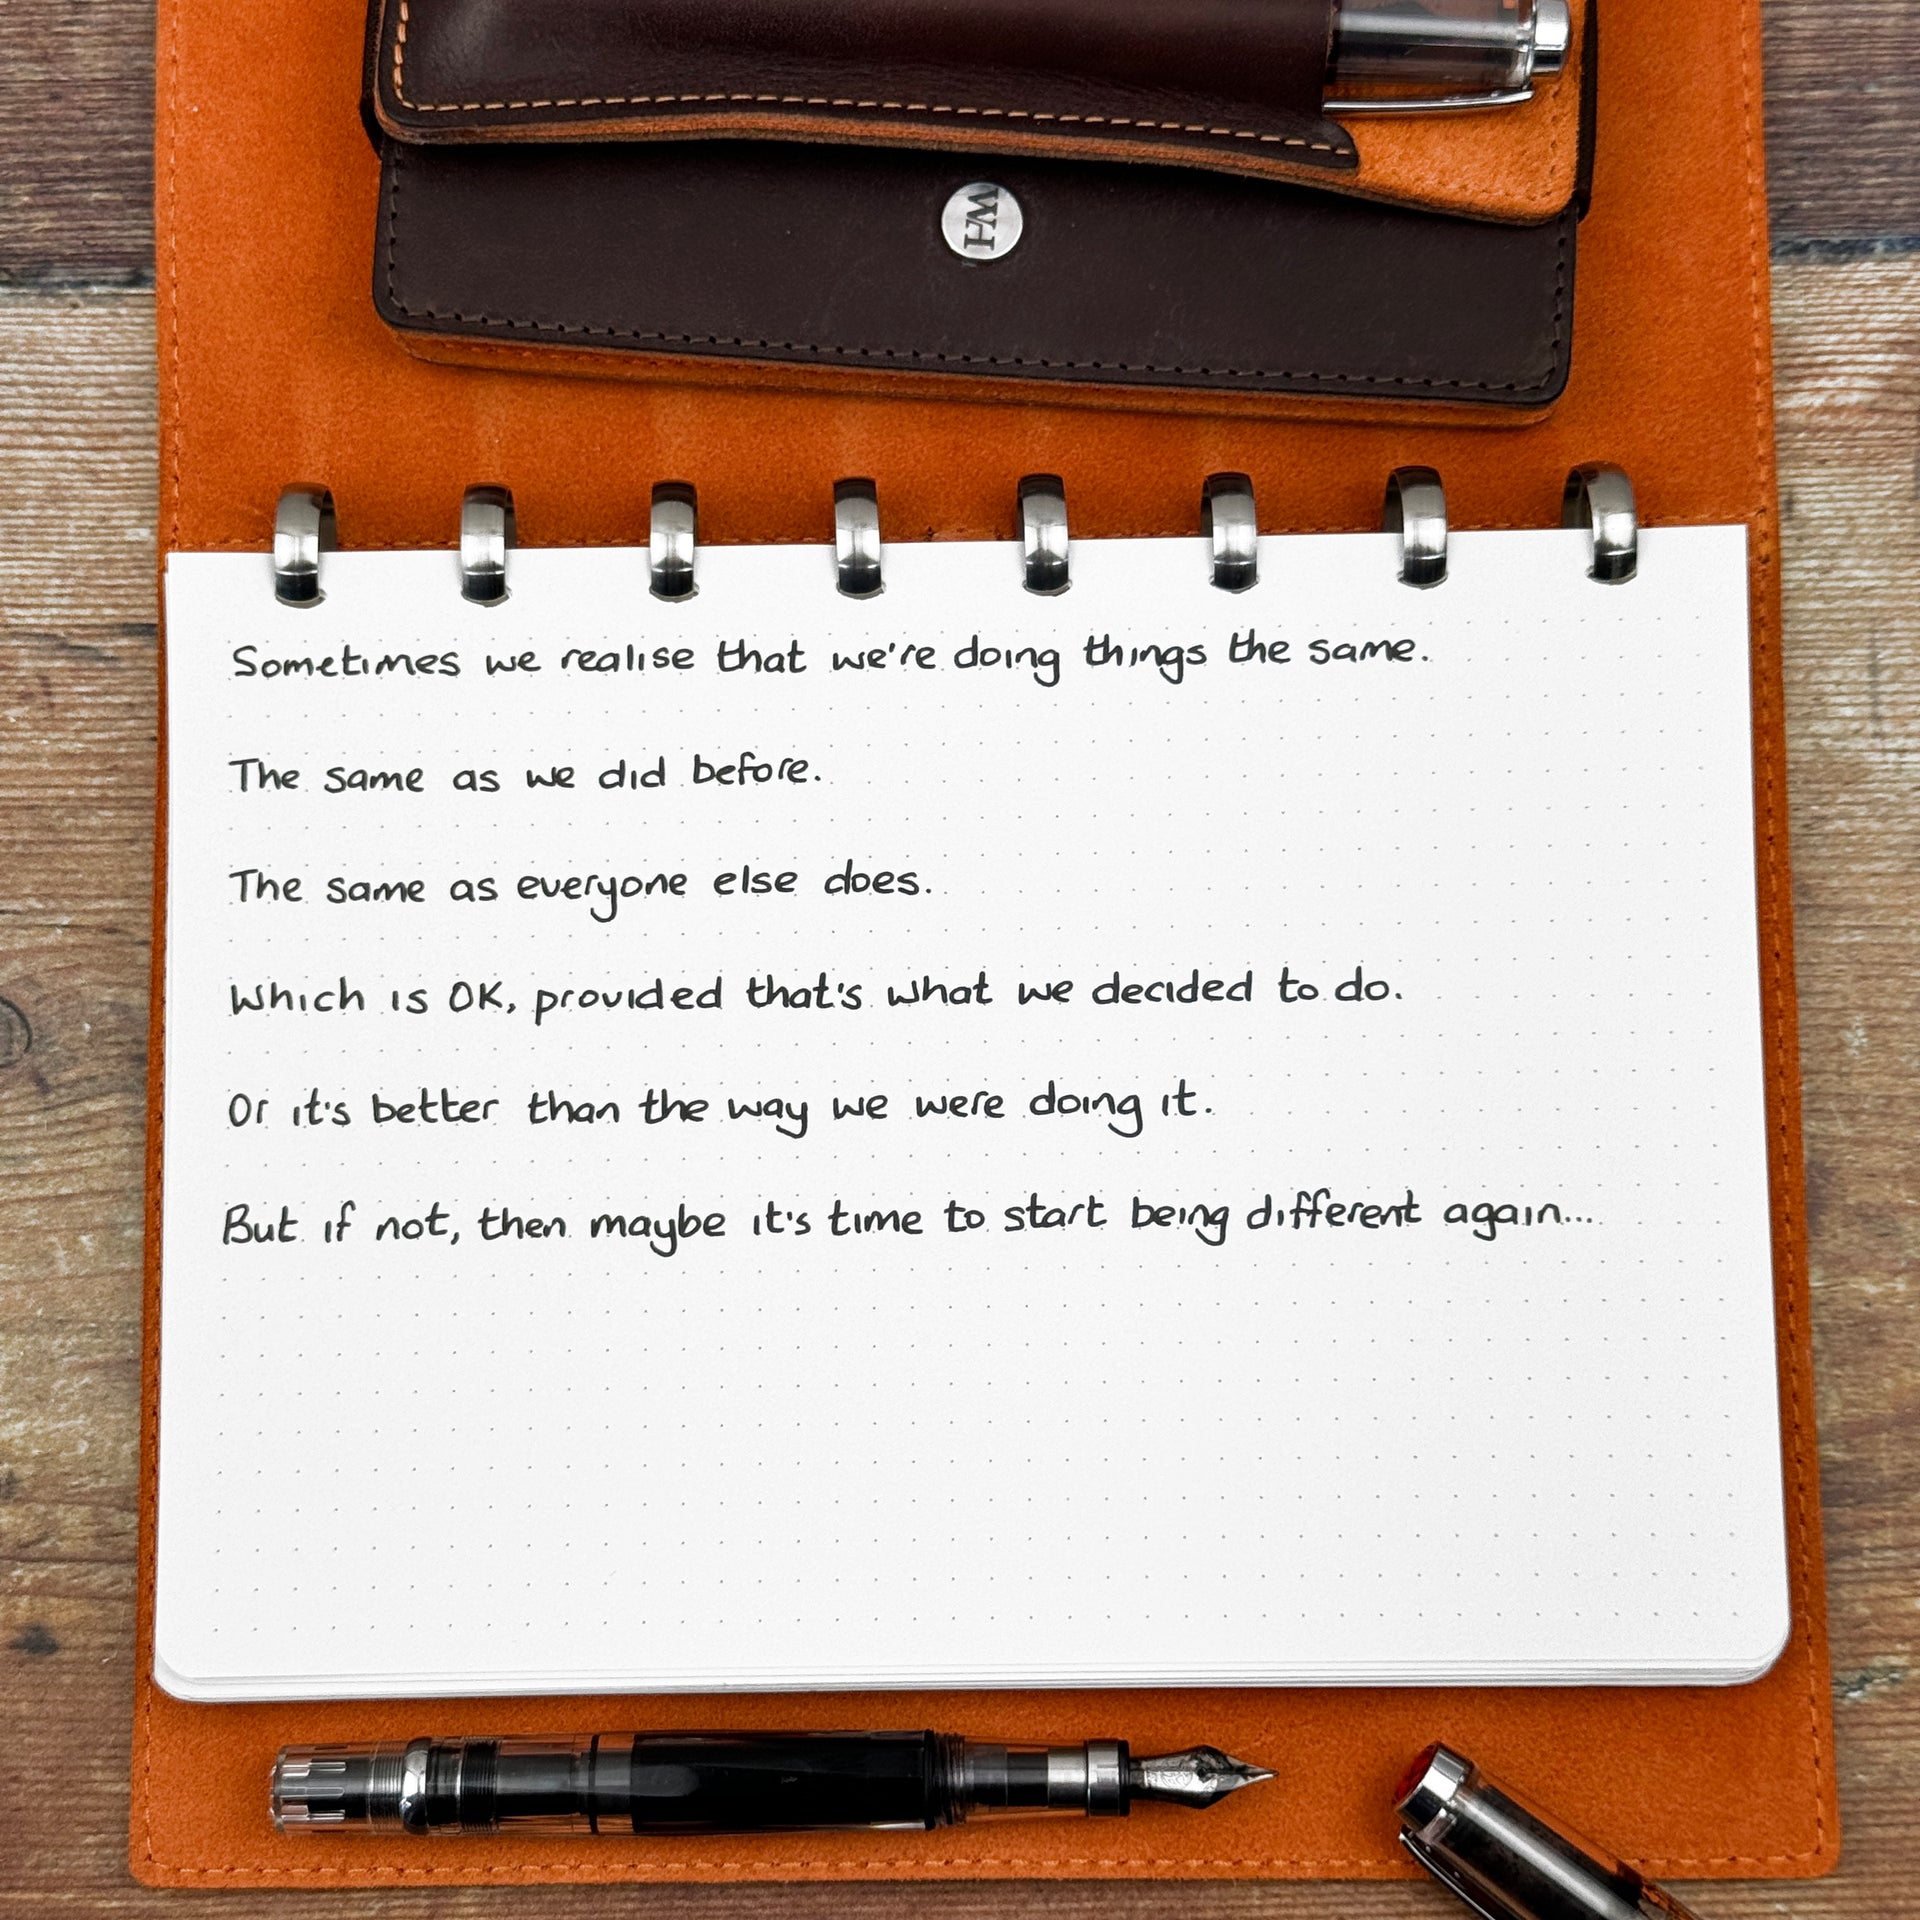 Sometimes we realise that we're doing things the same.
The same as we did before.
The same as everyone else does.
Which is OK, provided that's what we decided to do.
Or it's better than the way we were doing it.
But if not, then maybe it's time to start being different again...